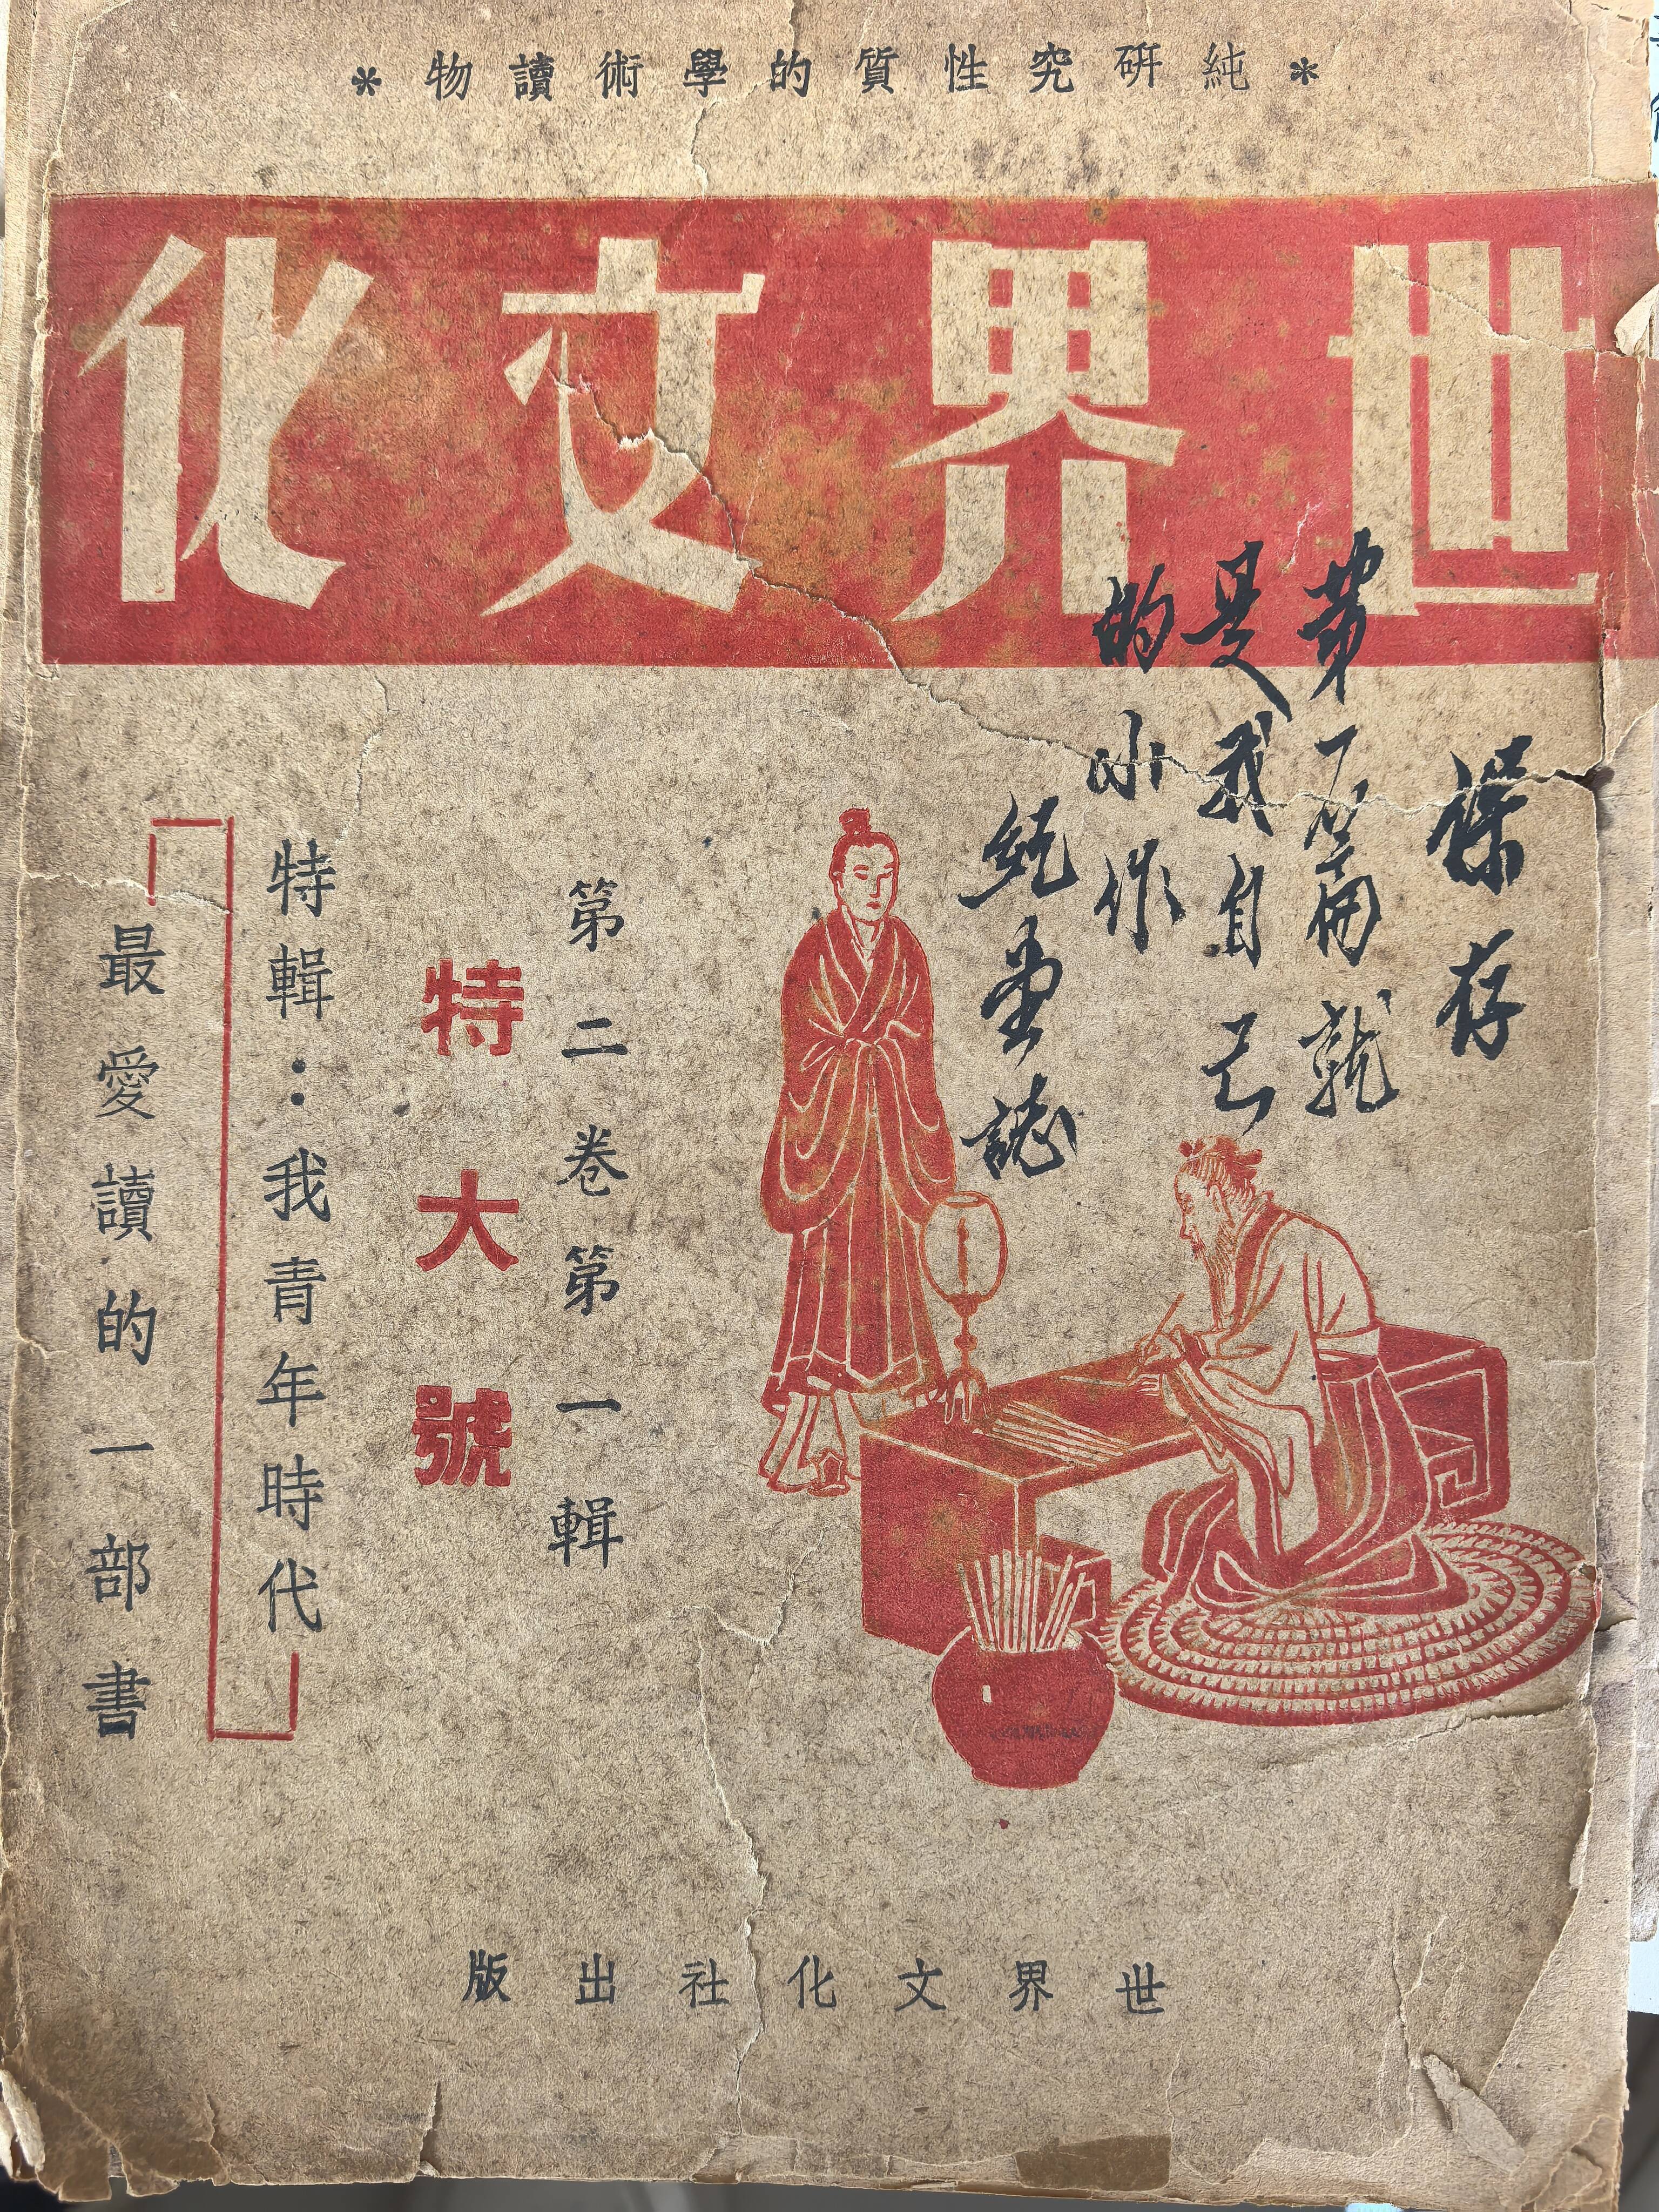 ＊純研究性質的學術讀物＊
世界文化
保存
第一篇就
是我自己
的小作
純堂誌
第二卷第一輯
特大號
特輯：我青年時代
最愛讀的一部書
世界文化社出版